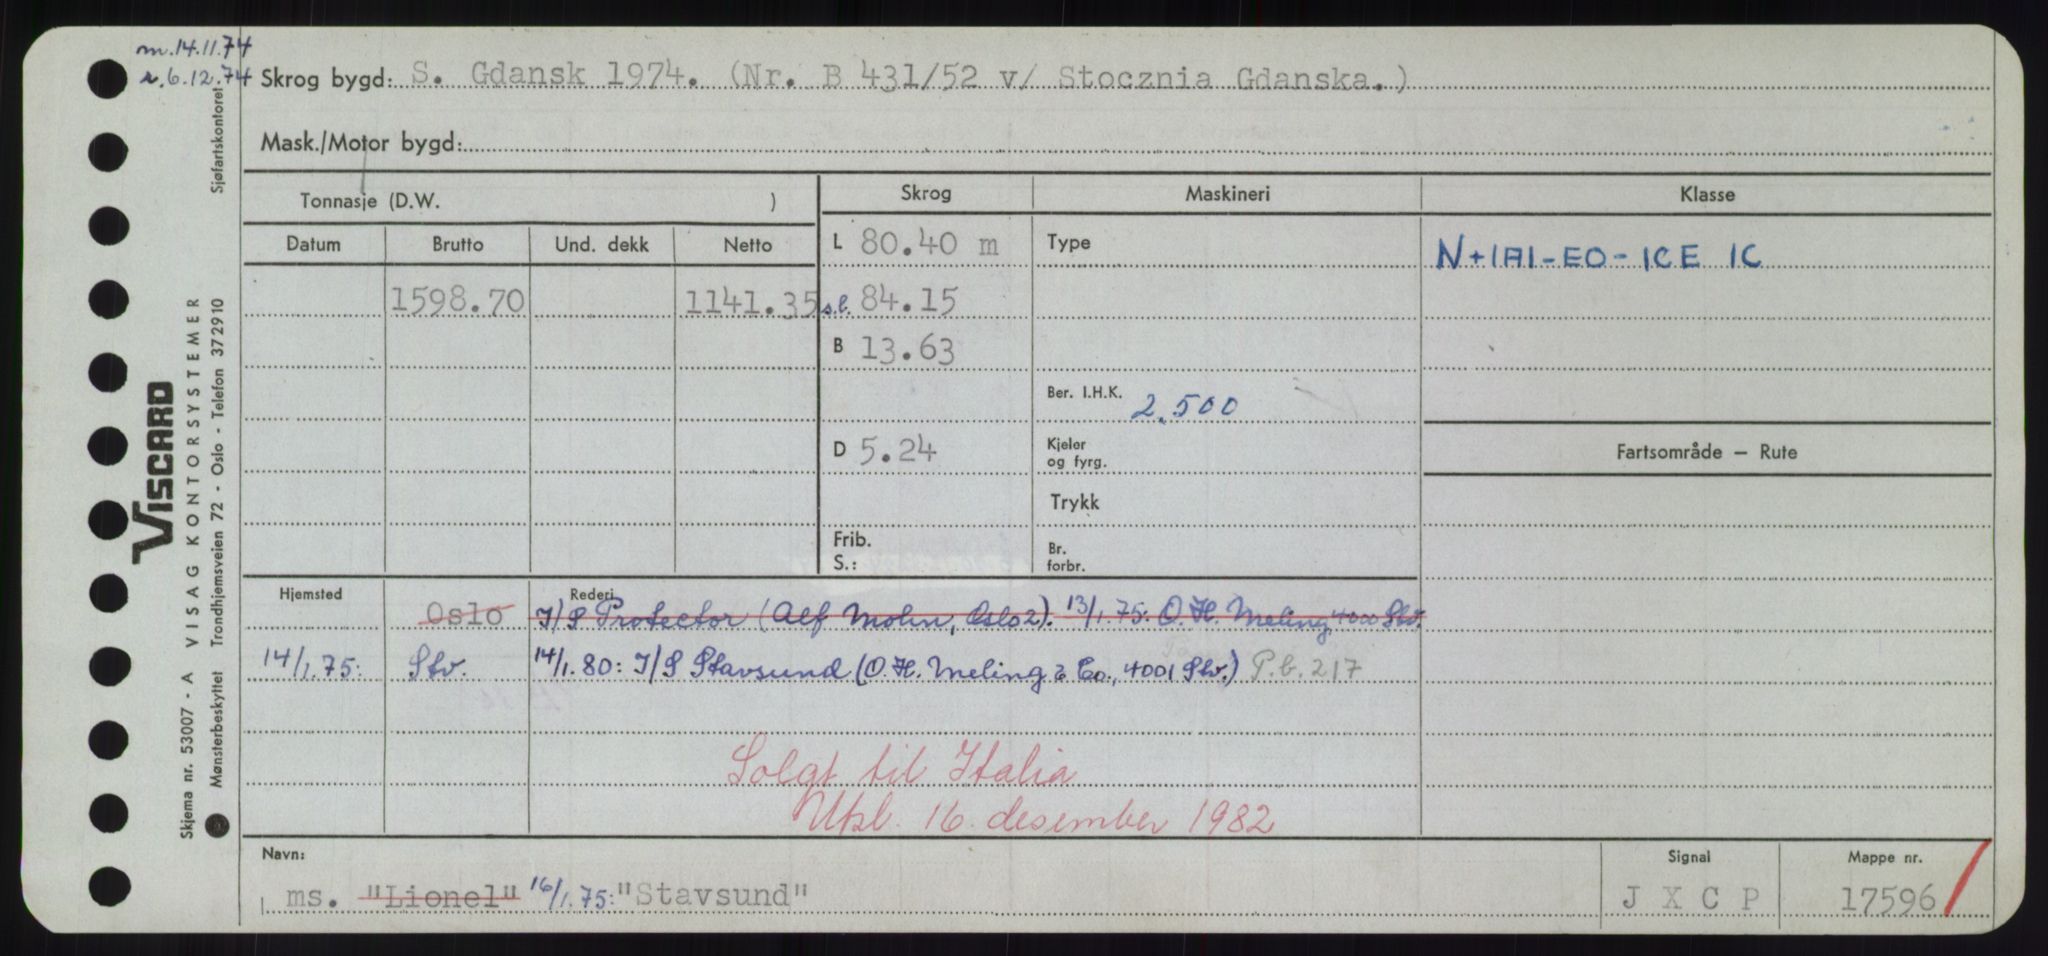 m.14.11.74
r.6.12.74
Skrog bygd: S. Gdansk 1974. (Nr. B 431/52 v/ Stocznia Gdanska.)
Mask./Motor bygd:
Tonnasje (D.W. )
Skrog
Maskineri
Klasse
Datum
Brutto
Und. dekk
Netto
L 80.40 m
Type
N+1A1-EO-ICE 1C
1598.70
1141.35
s.l. 84.15
B 13.63
Ber. I.H.K. 2.500
D 5.24
Kjeler
og fyrg.
Fartsområde — Rute
Trykk
Frib.
S.:
Br.
forbr.
Hjemsted
Rederi
Oslo
I/S Protector (Alf Mohn, Oslo 2). 13/1.75: O. H. Meling, 4000 Stv.
14/1.75: Stv.
14/1.80: I/S Stavsund (O. H. Meling & Co., 4001 Stv.) P.b. 217
Solgt til Italia
Utsl. 16. desember 1982
Navn:
ms. "Lionel" 16/1.75: "Stavsund"
Signal
J X C P
Mappe nr.
17596
VISCARD
VISAG KONTORSYSTEMER
Skjema nr. 53007 - A
Mønsterbeskyttet Trondhjemsveien 72 - Oslo - Telefon 372910
Sjøfartskontoret